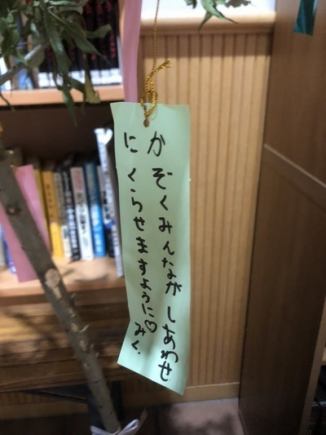 かぞくみんながしあわせ
にくらせますように♡
みく.